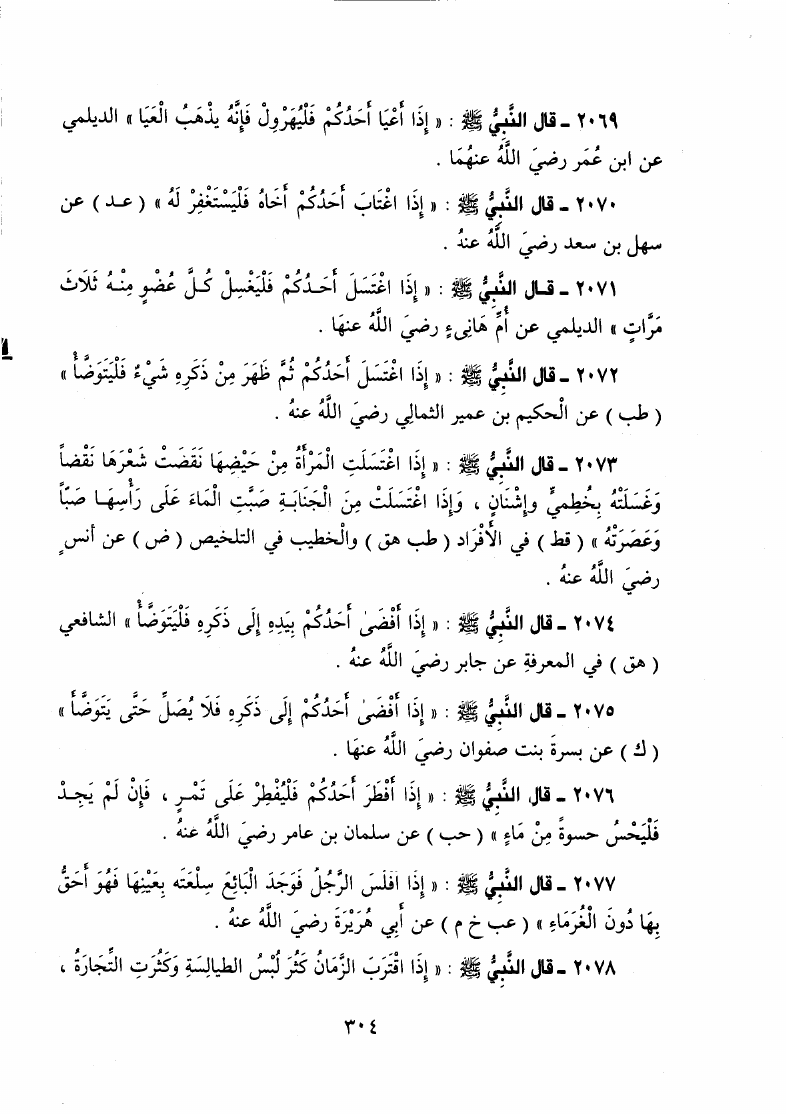 ٢٠٦٩ ـ قال النَّبيُّ ﷺ : « إِذَا أَعْيَا أَحَدُكُمْ فَلْيُهَرْوِلْ فَإِنَّهُ يذْهَبُ الْعَيَا » الديلمي
عن ابن عُمَر رضيَ اللَّهُ عنهُمَا .
٢٠٧٠ ـ قال النَّبيُّ ﷺ : « إِذَا اغْتَابَ أَحَدُكُمْ أَخَاهُ فَلْيَسْتَغْفِرْ لَهُ » ( عـد ) عن
سهل بن سعد رضيَ اللَّهُ عنهُ .
٢٠٧١ ـ قـال النَّبيُّ ﷺ : « إِذَا اغْتَسَلَ أَحَدُكُمْ فَلْيَغْسِلْ كُـلَّ عُضْوٍ مِنْـهُ ثَلَاثَ
مَرَّاتٍ » الديلمي عن أُمِّ هَانِىءٍ رضيَ اللَّهُ عنهَا .
٢٠٧٢ ـ قال النَّبيُّ ﷺ : « إِذَا اغْتَسَلَ أَحَدُكُمْ ثُمَّ ظَهَرَ مِنْ ذَكَرِهِ شَيْءٌ فَلْيَتَوَضَّأْ »
( طب ) عن الْحكيم بن عمير الثمالي رضيَ اللَّهُ عنهُ .
٢٠٧٣ ـ قال النَّبيُّ ﷺ : « إِذَا اغْتَسَلَتِ الْمَرْأَةُ مِنْ حَيْضِهَا نَقَضَتْ شَعْرَهَا نَقْضاً
وَغَسَلَتْهُ بِخُطمِيٍّ وإِشْنَانٍ ، وَإِذَا اغْتَسَلَتْ مِنَ الْجَنَابَـةِ صَبَّتِ الْمَاءَ عَلَى رَأْسِهَـا صَبّاً
وَعَصَرَتْهُ » ( قط ) في الأَفْرَادِ ( طب هق ) والْخطيب في التلخيص ( ض ) عن أنسٍ
رضيَ اللَّهُ عنهُ .
٢٠٧٤ ـ قال النَّبيُّ ﷺ : « إِذَا أَفْضَىٰ أَحَدُكُمْ بِيَدِهِ إِلَى ذَكَرِهِ فَلْيَتَوَضَّأْ » الشافعي
( هق ) في المعرفةِ عن جابر رضيَ اللَّهُ عنهُ .
٢٠٧٥ ـ قال النَّبيُّ ﷺ : « إِذَا أَفْضَىٰ أَحَدُكُمْ إِلَى ذَكَرِهِ فَلَا يُصَلِّ حَتَّى يَتَوَضَّأَ »
( ك ) عن بسرةَ بنت صفوان رضيَ اللَّهُ عنهَا .
٢٠٧٦ ـ قال النَّبيُّ ﷺ : « إِذَا أَفْطَرَ أَحَدُكُمْ فَلْيُفْطِرْ عَلَى تَمْـرٍ ، فَإِنْ لَمْ يَجِـدْ
فَلْيَحْسُ حسوةً مِنْ مَاءٍ » ( حب ) عن سلمان بن عامر رضيَ اللَّهُ عنهُ .
٢٠٧٧ ـ قال النَّبيُّ ﷺ : « إِذَا افَلَسَ الرَّجُلُ فَوَجَدَ الْبَائِعَ سِلْعَتَه بِعَيْنِهَا فَهُوَ أَحَقُّ
بِهَا دُونَ الْغُرَمَاءِ » ( عب خ م ) عن أَبِي هُرَيْرَةَ رضيَ اللَّهُ عنهُ .
٢٠٧٨ ـ قال النَّبيُّ ﷺ : « إِذَا اقْتَرَبَ الزَّمَانُ كَثُرَ لُبْسُ الطيالِسَةِ وَكَثُرَتِ التِّجَارَةُ ،
٣٠٤